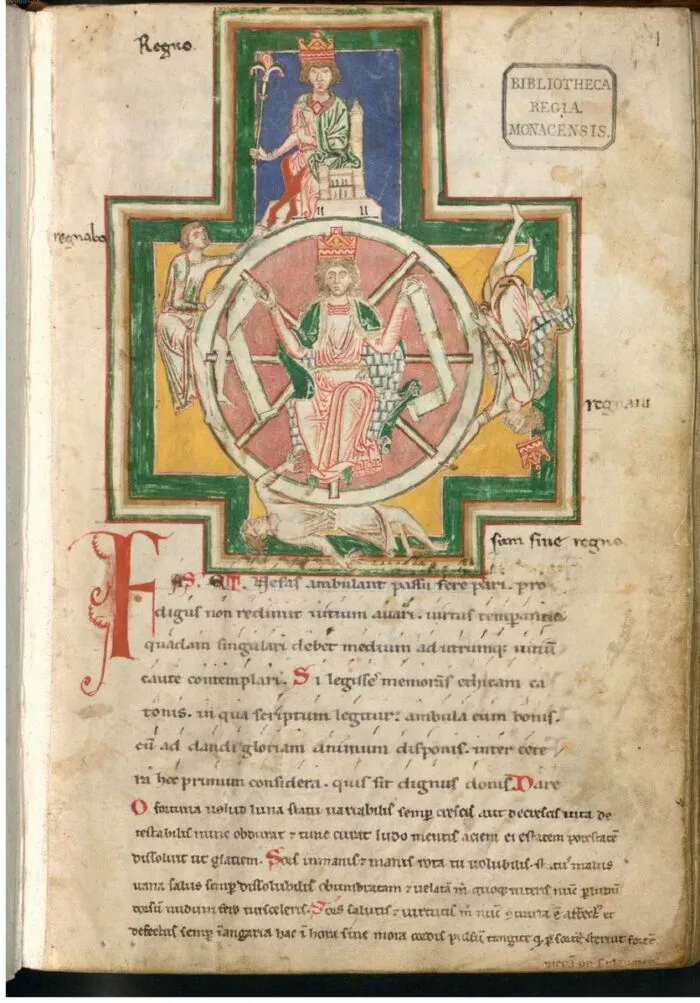 Regno
1
BIBLIOTHECA
REGIA
MONACENSIS.
regnabo
regnaui
sum sine regno
FAS. ET. Nefas ambulant passu fere pari. pro
digus non redimit uitium auari. uirtus temperantia
quadam singulari debet medium ad utrumq; uitiū
caute contemplari. Si legisse memoras ethicam ca
tonis. in qua scriptum legitur: ambula cum bonis.
cū ad dandi gloriam animum disponis. inter cete
ra hoc primum considera. quis sit dignus donis. Dare
O fortuna uelud luna statu uariabilis semp crescis aut decrescis uita de
testabilis nunc obdurat ⁊ tunc curat ludo mentis aciem egestatem potestatē
dissoluit ut glaciem. Sors immanis ⁊ inanis rota tu uolubilis. status malus
uana salus semp dissolubilis obumbratam ⁊ uelatam m quoq; niteris nūc p ludum
dorsū nudum fero tui sceleris. Sors salutis ⁊ uirtutis m nūc ē affect et
defectus semp ī angaria hac ī hora sine mora cordis pulsū tangite q p sortē sternit fortē.